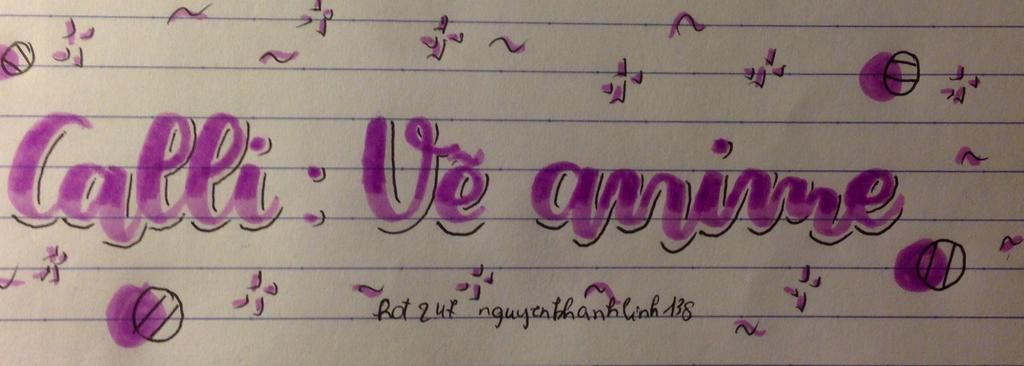 Calli : Vẽ anime
Hot 247 nguyenkhanhlinh138